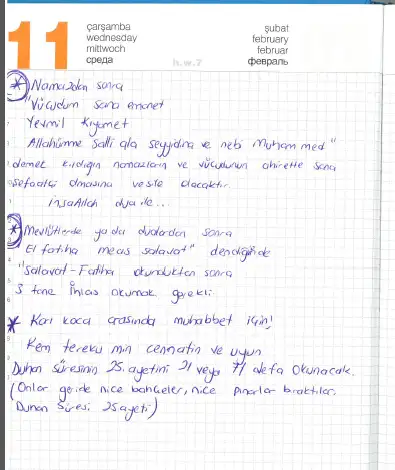 11
çarşamba
wednesday
mittwoch
среда
şubat
february
februar
февраль
h.w.7
* Namazdan sonra
"Vücudum sana emanet
Yevmil Kıyamet
Allahümme Salli ala seyyidina ve nebi Muhammed"
demek kıldığın namazların ve vücudunun ahirette sana
şefaatçi olmasına vesile olacaktır.
inşaAllah dua ile...
* Mevlütlerde ya da dualardan sonra
El fatiha meas salavat" dendiğinde
"Salavat-Fatiha okunduktan sonra
3 tane İhlas okumak gerekli.
* Karı koca arasında muhabbet için!
Kem tereku min cennatin ve uyun
Duhan Suresinin 25. ayetini 21 veya 71 defa okunacak.
(Onlar geride nice bahçeler, nice pınarlar bıraktılar.
Duhan Suresi 25 ayeti)